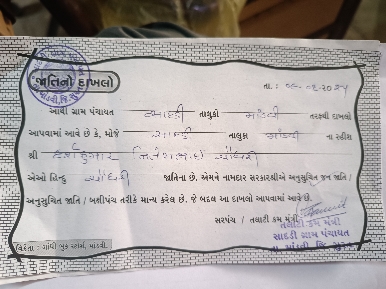 જાતિનો દાખલો
તા. :
આથી ગ્રામ પંચાયત સાદડી તાલુકો માંડવી તરફથી દાખલો
આપવામાં આવે છે કે, મોજે સાદડી તાલુકા માંડવી ના રહીશ
શ્રી ચૌધરી
એઓ હિન્દુ ચૌધરી જાતિના છે. એમને નામદાર સરકારશ્રીએ અનુસુચિત જન જાતિ /
અનુસુચિત જાતિ / બક્ષીપંચ તરીકે માન્ય કરેલ છે. જે બદલ આ દાખલો આપવામાં આવે છે.
સરપંચ / તલાટી કમ મંત્રી
તલાટી કમ મંત્રી
સાદડી ગ્રામ પંચાયત
તા. માંડવી જિ. સુરત
વિક્રેતા : ગાંધી બુક સ્ટોર્સ, માંડવી.